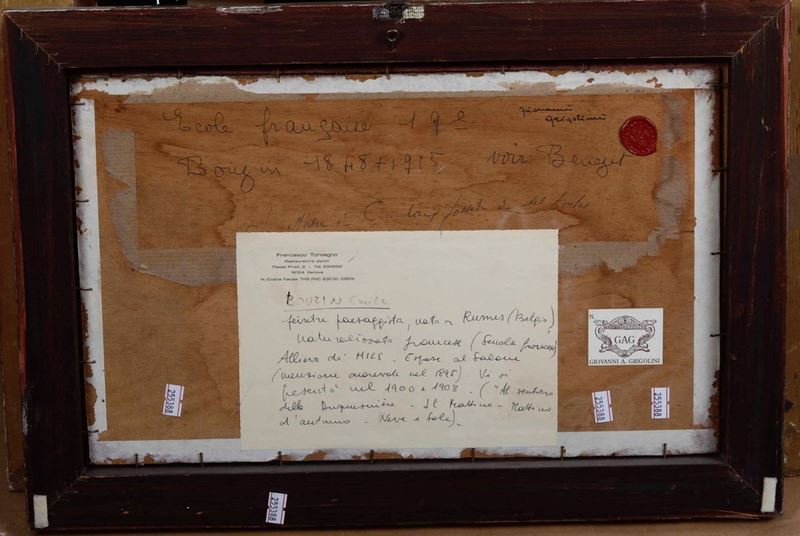 Ecole française 19e
Giovanni
Grigolini
Bouzin 1848 + 1915 voir Benezet
Francesco Torsegno
Restauratore dipinti
Piazza Pinelli, 2 - Tel. 294692
16124 Genova
BOUZIN Emile
peintre paesaggista, nato a Rumes (Belgio)
naturalizzato francese (Scuola francese)
Allievo di MILS - Espose al Salone
(menzione onorevole nel 1895). Vi si
presentò nel 1900 e 1908 - ("Al sentiero
della Duquesnière - Il Mattino - Mattino
d'autunno - Neve e Sole).
N.
GAG
GIOVANNI A. GRIGOLINI
255388
255388
255388
255388